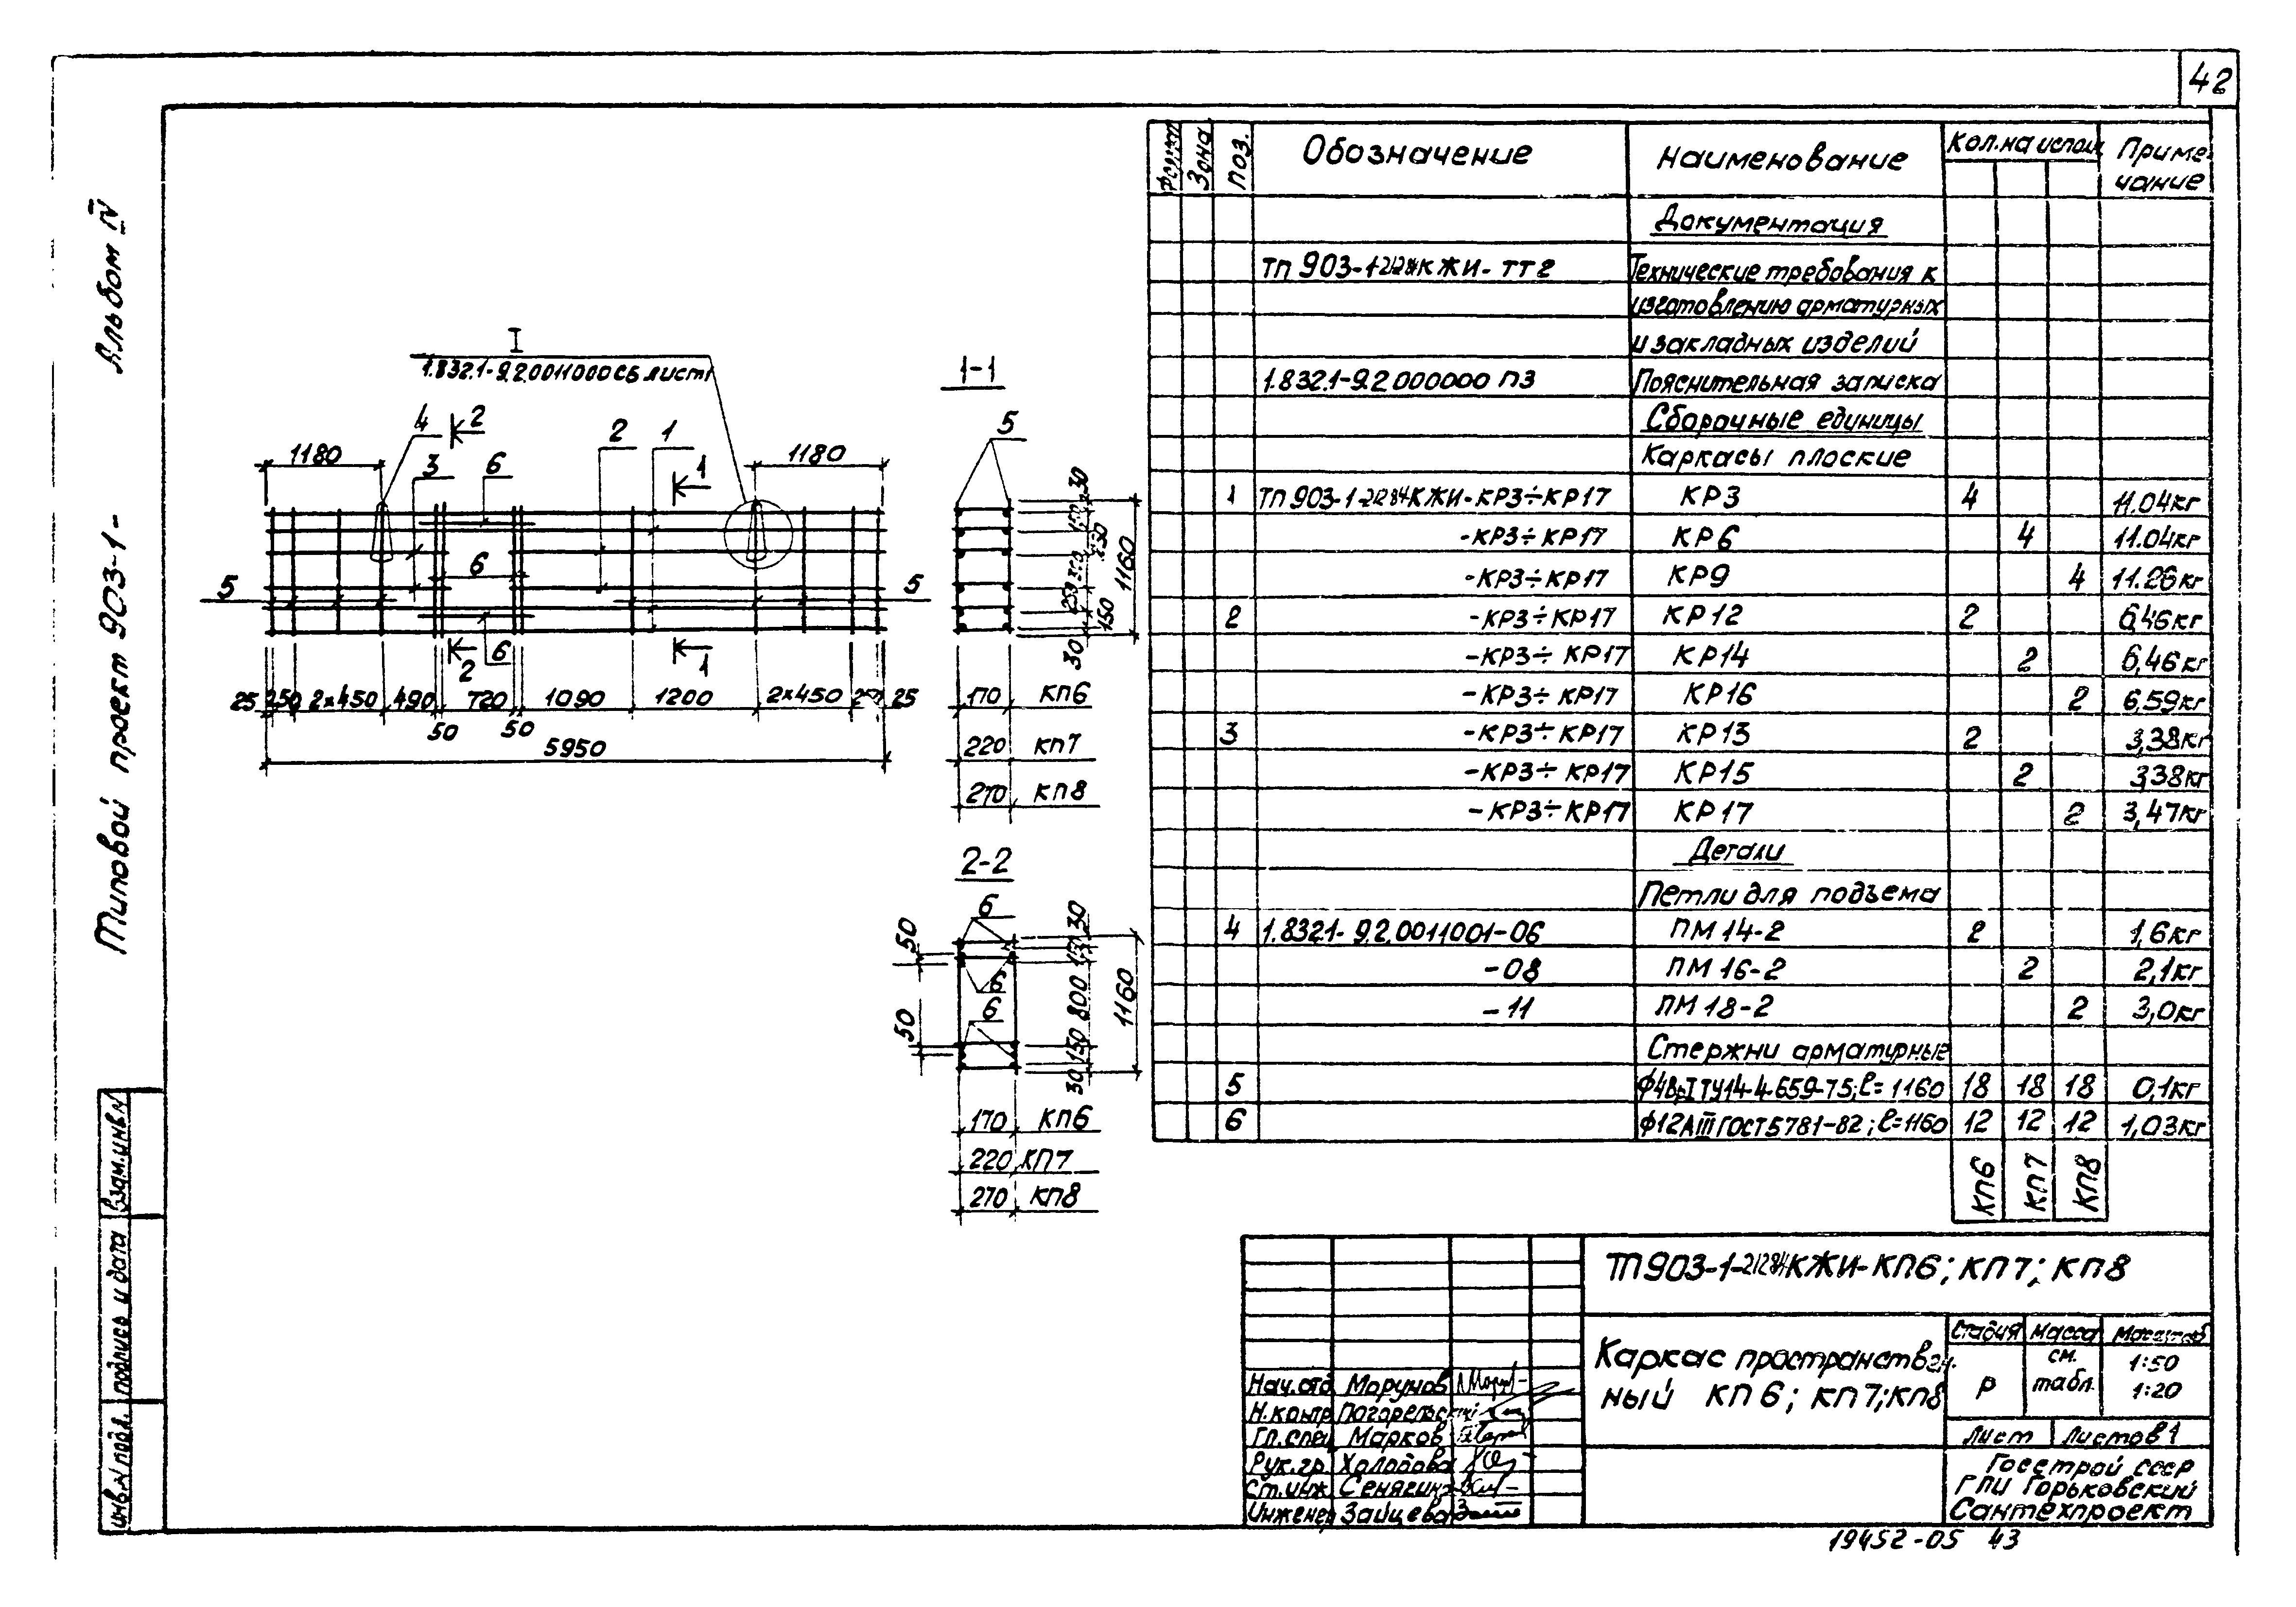 42
Альбом IV
Типовой проект 903-1-
I
1.832.1-9.2.0011000СБ лист1
1180
4
2
3
6
2
1
1
1180
5
6
5
2
6
1
25 250 2×450 490 720 1090 1200 2×450 25
50 50
5950
1-1
5
30
150
250
320
250
150
30
1160
170 КП6
220 КП7
270 КП8
2-2
6
6
6
50
50
30
150
800
150
30
1160
170 КП6
220 КП7
270 КП8
Формат Зона Поз. Обозначение Наименование Кол. на испол. Примечание
Документация
ТП 903-1-212.84 КЖИ-ТТ2 Технические требования к
изготовлению арматурных
и закладных изделий
1.832.1-9.2 000000 ПЗ Пояснительная записка
Сборочные единицы
Каркасы плоские
1 ТП 903-1-212.84 КЖИ-КР3÷КР17 КР3 4 11.04кг
-КР3÷КР17 КР6 4 11.04кг
-КР3÷КР17 КР9 4 11.26кг
2 -КР3÷КР17 КР12 2 6,46кг
-КР3÷КР17 КР14 2 6,46кг
-КР3÷КР17 КР16 2 6,59кг
3 -КР3÷КР17 КР13 2 3,38кг
-КР3÷КР17 КР15 2 3,38кг
-КР3÷КР17 КР17 2 3,47кг
Детали
Петли для подъема
4 1.832.1-9.2.0011001-06 ПМ14-2 2 1,6кг
-08 ПМ16-2 2 2,1кг
-11 ПМ18-2 2 3,0кг
Стержни арматурные
5 ф4ВрI ТУ14-4-659-75; ℓ=1160 18 18 18 0,1кг
6 ф12АIII ГОСТ5781-82; ℓ=1160 12 12 12 1,03кг
КП6 КП7 КП8
ТП903-1-212.84 КЖИ-КП6; КП7; КП8
Каркас пространствен-
ный КП6; КП7; КП8
Стадия Масса Масштаб
Р см. табл. 1:50 1:20
Лист Листов 1
Госстрой СССР
ГПИ Горьковский
Сантехпроект
Нач.отд Морунов
Н.контр Погорельский
Гл.спец Марков
Рук.гр. Холодова
Ст.инж. Сенягина
Инженер Зайцева
Взам.инв.N
Подпись и дата
Инв.N подл.
19452-05 43